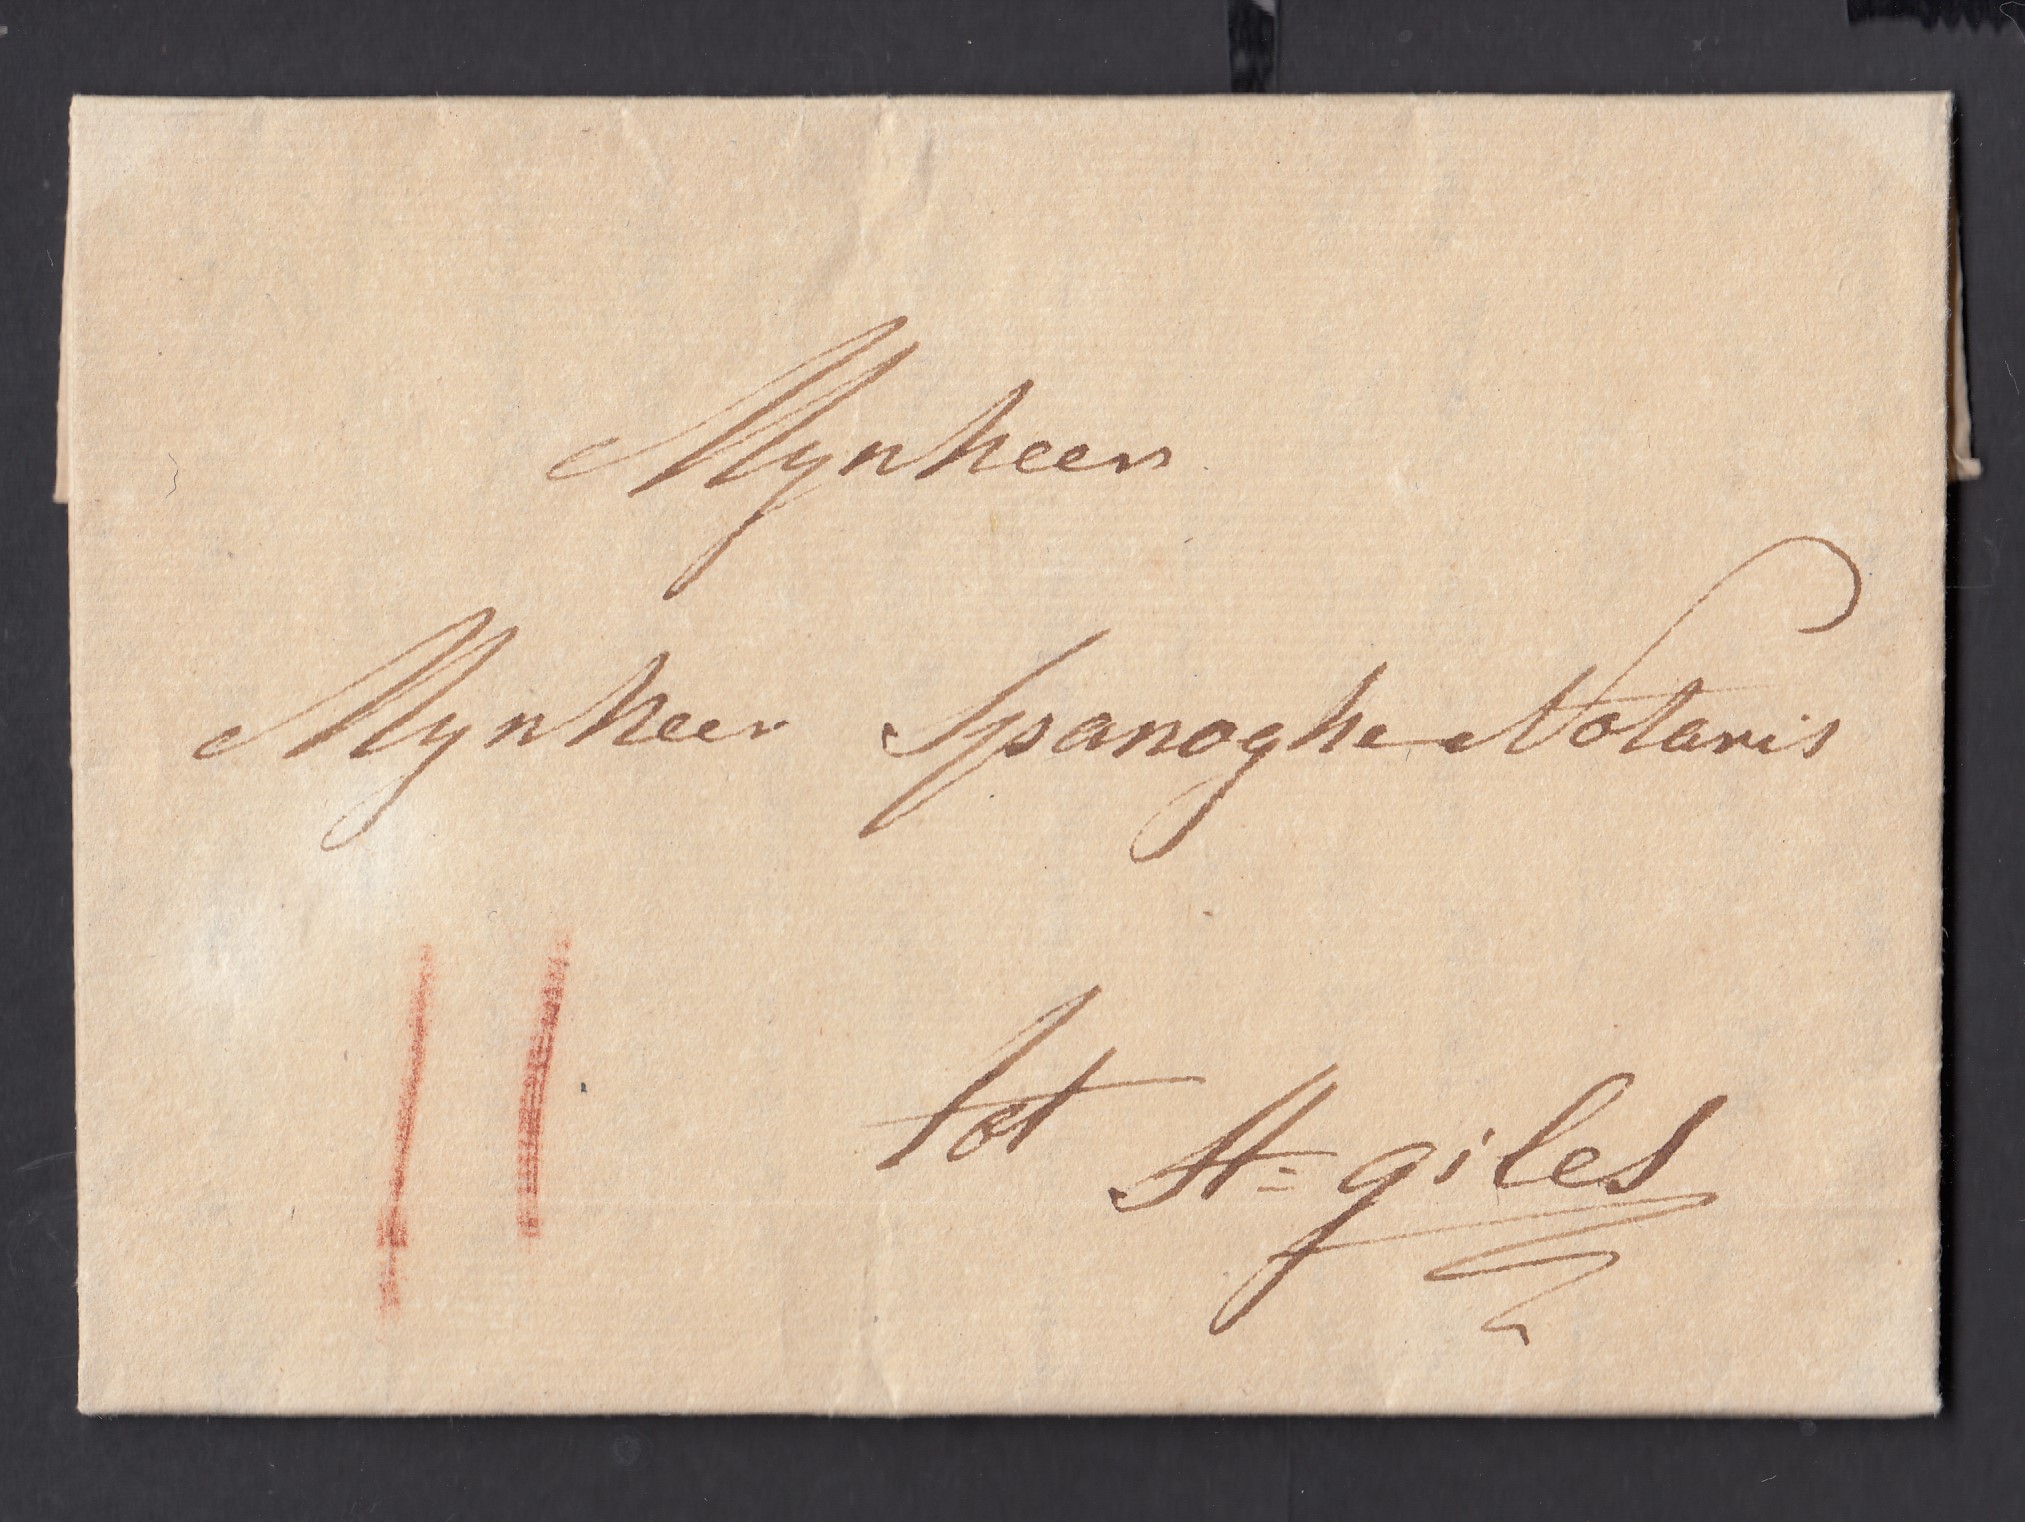 Mynheer
Mynheer Spanoghe Notaris
tot St= giles